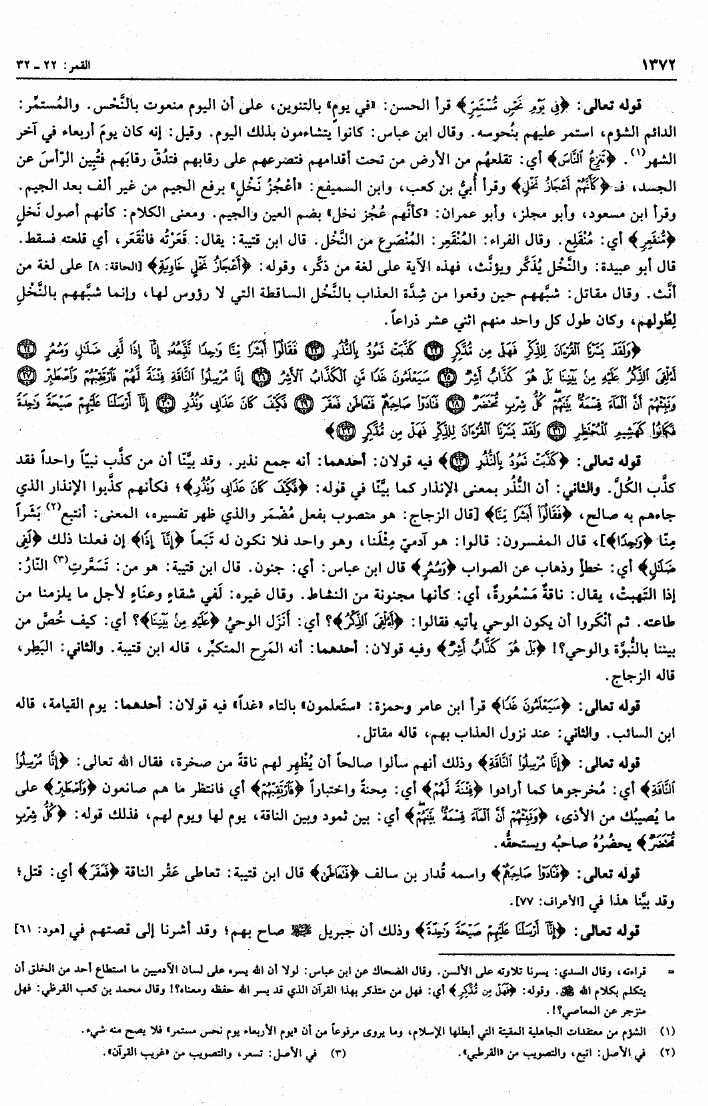 ١٣٧٢
القمر: ٢٢ ـ ٣٢
قوله تعالى: ﴿فِي يَوْمِ نَحْسٍ مُّسْتَمِرٍّ﴾ قرأ الحسن: «في يومٍ» بالتنوين، على أن اليوم منعوت بالنَّحْس. والمُستمِّر:
الدائم الشؤم، استمر عليهم بنُحوسه. وقال ابن عباس: كانوا يتشاءمون بذلك اليوم. وقيل: إنه كان يومَ أربعاء في آخر
الشهر(١). ﴿تَنزِعُ النَّاسَ﴾ أي: تقلعهُم من الأرض من تحت أقدامهم فتصرعهم على رقابهم فتدُقّ رقابَهم فتُبِين الرأسَ عن
الجسد، فـ ﴿كَأَنَّهُمْ أَعْجَازُ نَخْلٍ﴾ وقرأ أُبيُّ بن كعب، وابن السميفع: «أعْجُزُ نَخْلٍ» برفع الجيم من غير ألف بعد الجيم.
وقرأ ابن مسعود، وأبو مجلز، وأبو عمران: «كأنَّهم عُجُز نخل» بضم العين والجيم. ومعنى الكلام: كأنهم أصول نَخْلٍ
﴿مُّنقَعِرٍ﴾ أي: مُنْقَلِع. وقال الفراء: المُنْقَعِر: المُنْصَرِع من النَّخْل. قال ابن قتيبة: يقال: قَعَرْتُه فانْقَعَر، أي قلعته فسقط.
قال أبو عبيدة: والنَّخْل يُذَكَّر ويؤنَّث، فهذه الآية على لغة من ذكَّر، وقوله: ﴿أَعْجَازُ نَخْلٍ خَاوِيَةٍ﴾ [الحاقة: ٨] على لغة من
أنَّث. وقال مقاتل: شبَّههم حين وقعوا من شِدَّة العذاب بالنَّخْل الساقطة التي لا رؤوس لها، وإنما شبَّههم بالنَّخْل
لِطُولهم، وكان طول كل واحد منهم اثني عشر ذراعاً.
﴿وَلَقَدْ يَسَّرْنَا الْقُرْآنَ لِلذِّكْرِ فَهَلْ مِن مُّدَّكِرٍ ﴿٢٢﴾ كَذَّبَتْ ثَمُودُ بِالنُّذُرِ ﴿٢٣﴾ فَقَالُوا أَبَشَرًا مِّنَّا وَاحِدًا نَّتَّبِعُهُ إِنَّا إِذًا لَّفِي ضَلَالٍ وَسُعُرٍ ﴿٢٤﴾
أَءُلْقِيَ الذِّكْرُ عَلَيْهِ مِن بَيْنِنَا بَلْ هُوَ كَذَّابٌ أَشِرٌ ﴿٢٥﴾ سَيَعْلَمُونَ غَدًا مَّنِ الْكَذَّابُ الْأَشِرُ ﴿٢٦﴾ إِنَّا مُرْسِلُوا النَّاقَةِ فِتْنَةً لَّهُمْ فَارْتَقِبْهُمْ وَاصْطَبِرْ ﴿٢٧﴾
وَنَبِّئْهُمْ أَنَّ الْمَاءَ قِسْمَةٌ بَيْنَهُمْ كُلُّ شِرْبٍ مُّحْتَضَرٌ ﴿٢٨﴾ فَنَادَوْا صَاحِبَهُمْ فَتَعَاطَى فَعَقَرَ ﴿٢٩﴾ فَكَيْفَ كَانَ عَذَابِي وَنُذُرِ ﴿٣٠﴾ إِنَّا أَرْسَلْنَا عَلَيْهِمْ صَيْحَةً وَاحِدَةً
فَكَانُوا كَهَشِيمِ الْمُحْتَظِرِ ﴿٣١﴾ وَلَقَدْ يَسَّرْنَا الْقُرْآنَ لِلذِّكْرِ فَهَلْ مِن مُّدَّكِرٍ ﴿٣٢﴾﴾
قوله تعالى: ﴿كَذَّبَتْ ثَمُودُ بِالنُّذُرِ ﴿٢٣﴾﴾ فيه قولان: أحدهما: أنه جمع نذير. وقد بيَّنا أن من كذَّب نبيّاً واحداً فقد
كذَّب الكُلَّ. والثاني: أن النُّذُر بمعنى الإنذار كما بيَّنا في قوله: ﴿فَكَيْفَ كَانَ عَذَابِي وَنُذُرِ﴾؛ فكأنهم كذَّبوا الإنذار الذي
جاءهم به صالح، ﴿فَقَالُوا أَبَشَرًا مِّنَّا﴾ [قال الزجاج: هو منصوب بفعل مُضْمَر والذي ظهر تفسيره، المعنى: أنتبع(٢) بَشَراً
مِنّا ﴿وَاحِدًا﴾]، قال المفسرون: قالوا: هو آدميّ مِثْلُنا، وهو واحد فلا نكون له تَبَعاً ﴿إِنَّا إِذًا﴾ إن فعلنا ذلك ﴿لَّفِي
ضَلَالٍ﴾ أي: خطأٍ وذهاب عن الصواب ﴿وَسُعُرٍ﴾ قال ابن عباس: أي: جنون. قال ابن قتيبة: هو من: تَسَعَّرتِ(٣) النّارُ:
إذا التَهبتْ، يقال: ناقةٌ مَسْعُورةٌ، أي: كأنها مجنونة من النشاط. وقال غيره: لَفي شقاءٍ وعناءٍ لأجل ما يلزمنا من
طاعته. ثم أنْكَروا أن يكون الوحي يأتيه فقالوا: ﴿أَءُلْقِيَ الذِّكْرُ﴾؟ أي: أنَزَل الوحيُ ﴿عَلَيْهِ مِن بَيْنِنَا﴾؟ أي: كيف خُصَّ من
بيننا بالنُّبوَّة والوحي؟! ﴿بَلْ هُوَ كَذَّابٌ أَشِرٌ﴾ وفيه قولان: أحدهما: أنه المَرِح المتكبِّر، قاله ابن قتيبة. والثاني: البَطِر،
قاله الزجاج.
قوله تعالى: ﴿سَيَعْلَمُونَ غَدًا﴾ قرأ ابن عامر وحمزة: «ستَعلمون» بالتاء «غداً» فيه قولان: أحدهما: يوم القيامة، قاله
ابن السائب. والثاني: عند نزول العذاب بهم، قاله مقاتل.
قوله تعالى: ﴿إِنَّا مُرْسِلُوا النَّاقَةِ﴾ وذلك أنهم سألوا صالحاً أن يُظْهِر لهم ناقةً من صخرة، فقال الله تعالى: ﴿إِنَّا مُرْسِلُوا
النَّاقَةِ﴾ أي: مُخرِجوها كما أرادوا ﴿فِتْنَةً لَّهُمْ﴾ أي: مِحنةً واختباراً ﴿فَارْتَقِبْهُمْ﴾ أي فانتظر ما هم صانعون ﴿وَاصْطَبِرْ﴾ على
ما يُصيبُك من الأذى، ﴿وَنَبِّئْهُمْ أَنَّ الْمَاءَ قِسْمَةٌ بَيْنَهُمْ﴾ أي: بين ثمود وبين الناقة، يوم لها ويوم لهم، فذلك قوله: ﴿كُلُّ شِرْبٍ
مُّحْتَضَرٌ﴾ يحضُرُهُ صاحبُه ويستحقُّه.
قوله تعالى: ﴿فَنَادَوْا صَاحِبَهُمْ﴾ واسمه قُدار بن سالف ﴿فَتَعَاطَى﴾ قال ابن قتيبة: تعاطى عَقْر الناقة ﴿فَعَقَرَ﴾ أي: قتل؛
وقد بيَّنا هذا في [الأعراف: ٧٧].
قوله تعالى: ﴿إِنَّا أَرْسَلْنَا عَلَيْهِمْ صَيْحَةً وَاحِدَةً﴾ وذلك أن جبريل ﷺ صاح بهم؛ وقد أشرنا إلى قصتهم في [هود: ٦١]
= قراءته، وقال السدي: يسرنا تلاوته على الألسن. وقال الضحاك عن ابن عباس: لولا أن الله يسره على لسان الآدميين ما استطاع أحد من الخلق أن
يتكلم بكلام الله ﷻ. وقوله: ﴿فَهَلْ مِن مُّدَّكِرٍ﴾ أي: فهل من متذكر بهذا القرآن الذي قد يسر الله حفظه ومعناه؟! وقال محمد بن كعب القرظي: فهل
منزجر عن المعاصي؟!.
(١) الشؤم من معتقدات الجاهلية المقيتة التي أبطلها الإسلام، وما يروى مرفوعاً من أن «يوم الأربعاء يوم نحس مستمر» فلا يصح منه شيء.
(٢) في الأصل: اتبع، والتصويب من «القرطبي».
(٣) في الأصل: تسعر، والتصويب من «غريب القرآن».